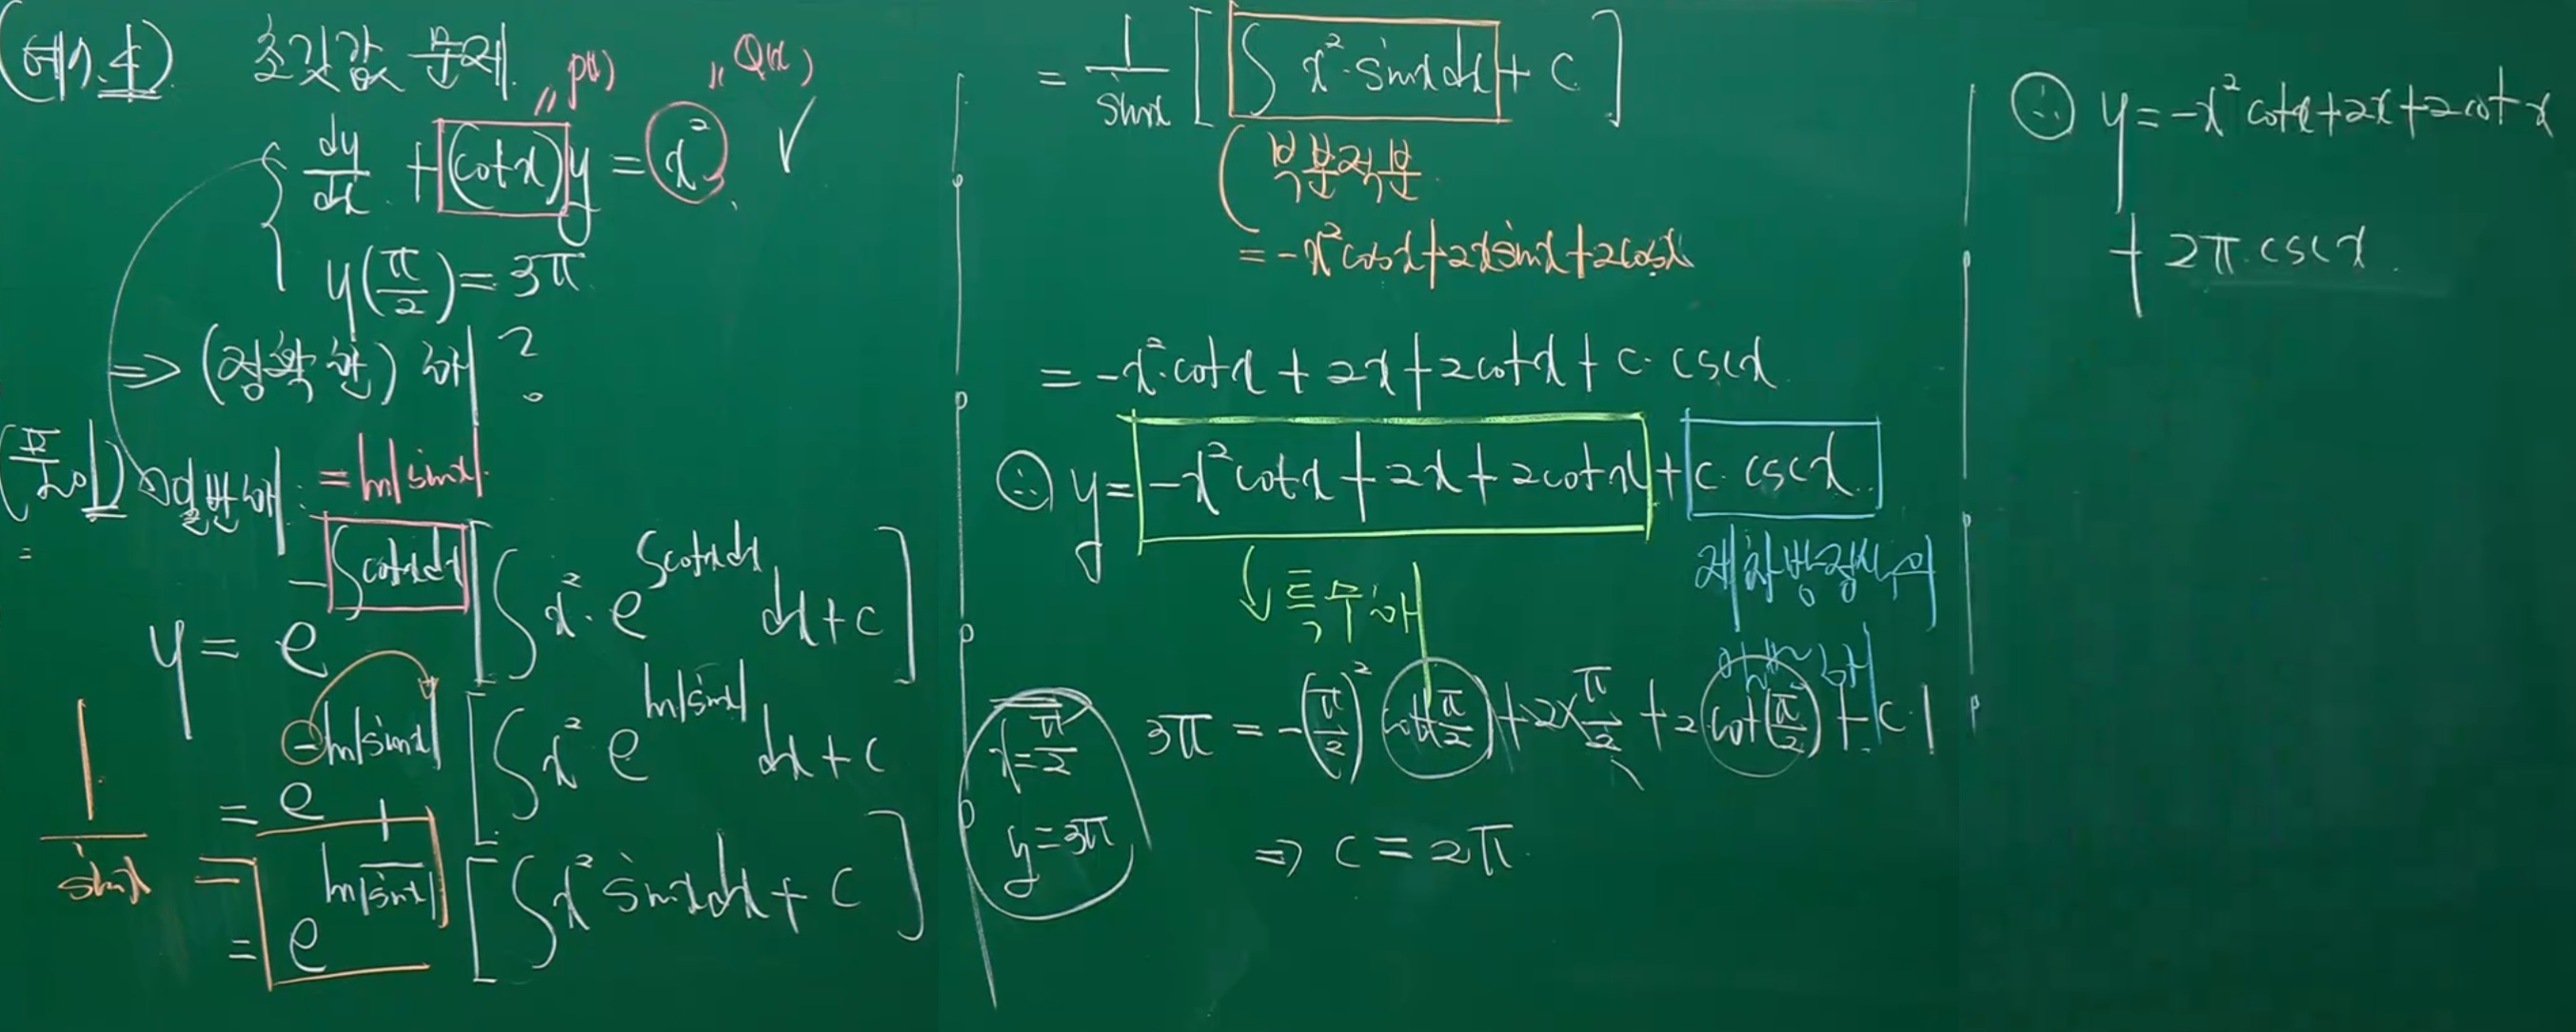 (예시.4) 초깃값 문제.
" P(x)
" Q(x)
dy/dx + (cotx)y = x² ✓
y(π/2) = 3π
⇒ (정확한) 해?
(풀이) 일반해:
= ln|sinx|
y = e^(-∫cotxdx) [∫x²·e^(∫cotxdx) dx + c]
= e^(-ln|sinx|) [∫x² e^(ln|sinx|) dx + c
= e^(ln 1/|sinx|) [∫x² sinxdx + c]
1/sinx =
= 1/sinx [∫x²·sinxdx + c]
부분적분
= -x²cosx + 2xsinx + 2cosx
= -x²·cotx + 2x + 2cotx + c·cscx
∴ y = -x²cotx + 2x + 2cotx + c·cscx
특수해
제차방정식의
일반해
x = π/2
y = 3π
3π = -(π/2)² cot(π/2) + 2×π/2 + 2cot(π/2) + c·1
⇒ c = 2π
∴ y = -x²cotx + 2x + 2cotx
+ 2π·cscx.